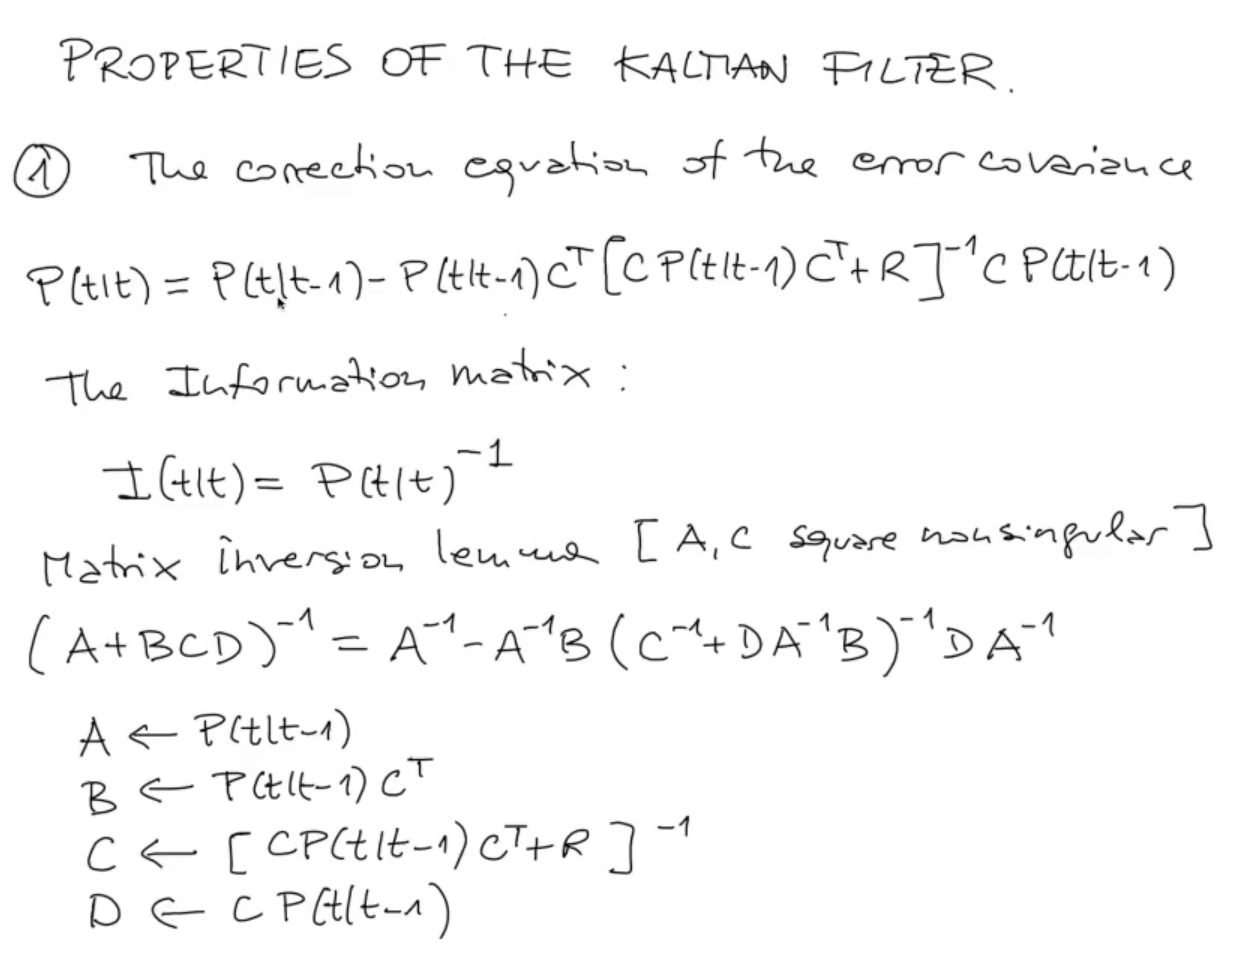 PROPERTIES OF THE KALMAN FILTER.
① The correction equation of the error covariance
P(t|t) = P(t|t-1) - P(t|t-1) Cᵀ [C P(t|t-1) Cᵀ + R]⁻¹ C P(t|t-1)
The Information matrix :
I(t|t) = P(t|t)⁻¹
Matrix inversion lemma [A, C square nonsingular]
(A+BCD)⁻¹ = A⁻¹ - A⁻¹B (C⁻¹ + DA⁻¹B)⁻¹ DA⁻¹
A ← P(t|t-1)
B ← P(t|t-1) Cᵀ
C ← [CP(t|t-1) Cᵀ + R]⁻¹
D ← C P(t|t-1)